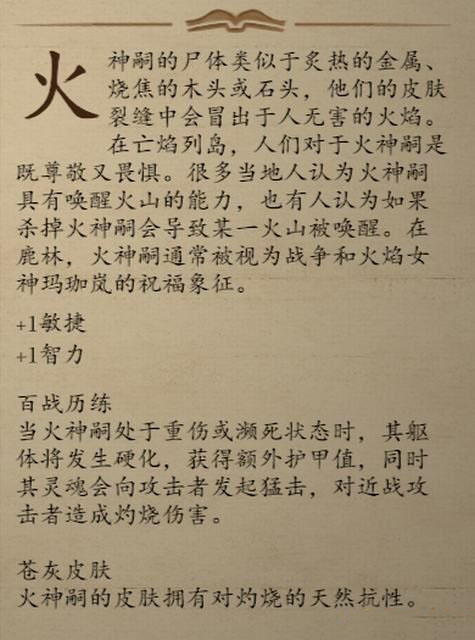 火神嗣的尸体类似于炙热的金属、
烧焦的木头或石头，他们的皮肤
裂缝中会冒出于人无害的火焰。
在亡焰列岛，人们对于火神嗣是
既尊敬又畏惧。很多当地人认为火神嗣
具有唤醒火山的能力，也有人认为如果
杀掉火神嗣会导致某一火山被唤醒。在
鹿林，火神嗣通常被视为战争和火焰女
神玛珈岚的祝福象征。
+1敏捷
+1智力
百战历练
当火神嗣处于重伤或濒死状态时，其躯
体将发生硬化，获得额外护甲值，同时
其灵魂会向攻击者发起猛击，对近战攻
击者造成灼烧伤害。
苍灰皮肤
火神嗣的皮肤拥有对灼烧的天然抗性。